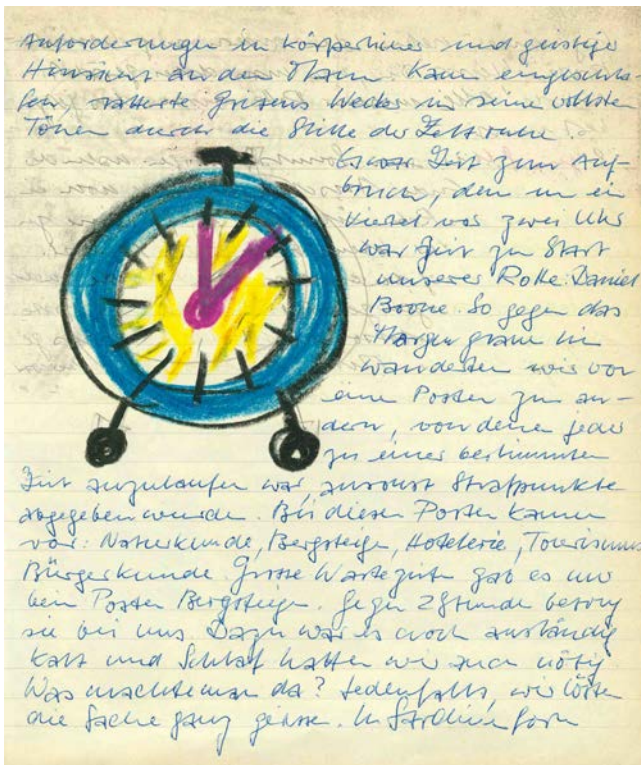 Anforderungen in körperlicher und geistiger
Hinsicht an den Mann. Kaum eingeschla-
fen, ratterte Grizens Wecker in seine vollsten
Tönen durch die Stille der Zeltruhe.
Es war Zeit zum Auf-
bruch, den um ein
viertel vor zwei Uhr
war Zeit zu Start
unserer Rotte: Daniel
Boone. So gegen das
Morgengrauen
wanderten wir von
eine Posten zum an-
dern, von denen jeder
zu einer bestimmten
Zeit anzulaufen war, ansonst Strafpunkte
abgegeben wurden. Bei diesen Posten kamen
vor: Naturkunde, Bergsteigen, Hotelerie, Tourismus
Bürgerkunde. Grosse Wartezeiten gab es nur
beim Posten Bergsteigen. Gegen 2 Stunde betrug
sie bei uns. Dazu war es noch anständig
kalt und Schlaf hatten wir auch nötig.
Was machte man da? Jedenfalls, wir lösten
die Sache ganz genau. In Sardinenform